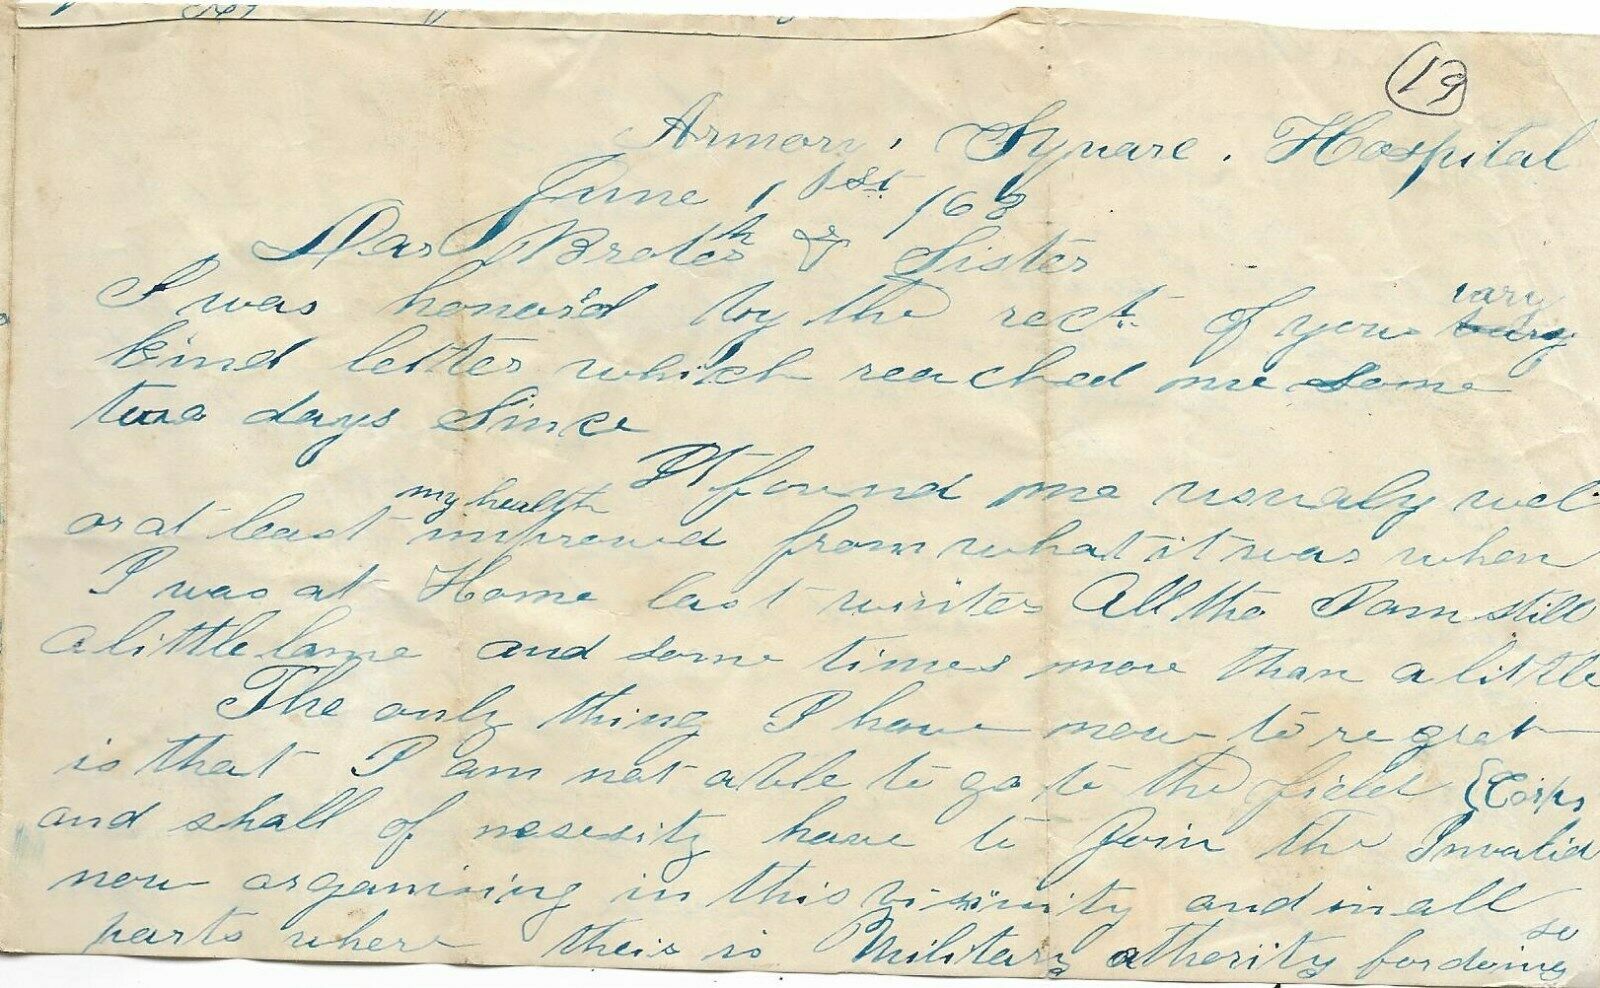 19
Armory, Square. Hospital
June 1st /63
Dear Brother & Sister
I was honord by the rect. of your vary
kind letter which reached me some
two days since
It found me usualy wel
or at least my health improved from what it was when
I was at Home last winter All tho I am still
a little lame and some times more than a little
The only thing I have now to regret
is that I am not able to go to the field
and shall of nesesity have to Join the Invalid {Corps
now organising in this visinity and in all
parts where their is Military athority for doing so